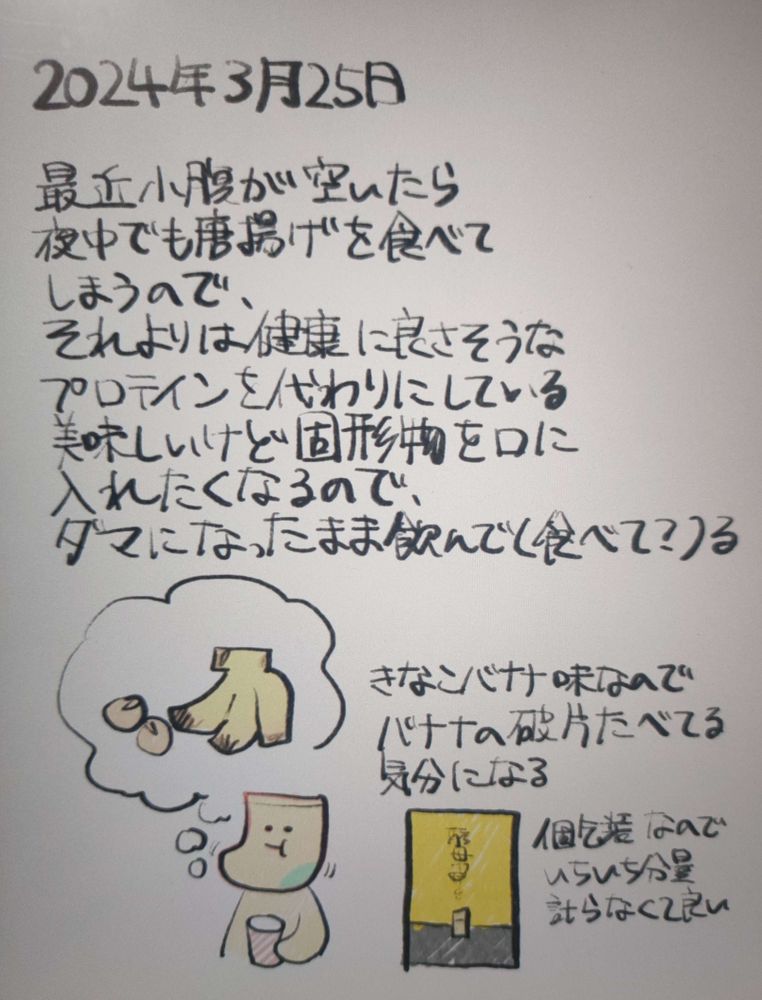 2024年3月25日
最近小腹が空いたら
夜中でも唐揚げを食べて
しまうので、
それよりは健康に良さそうな
プロテインを代わりにしている
美味しいけど固形物を口に
入れたくなるので、
ダマになったまま飲んで(食べて?)る
きなこバナナ味なので
バナナの破片たべてる
気分になる
個包装なので
いちいち分量
計らなくて良い